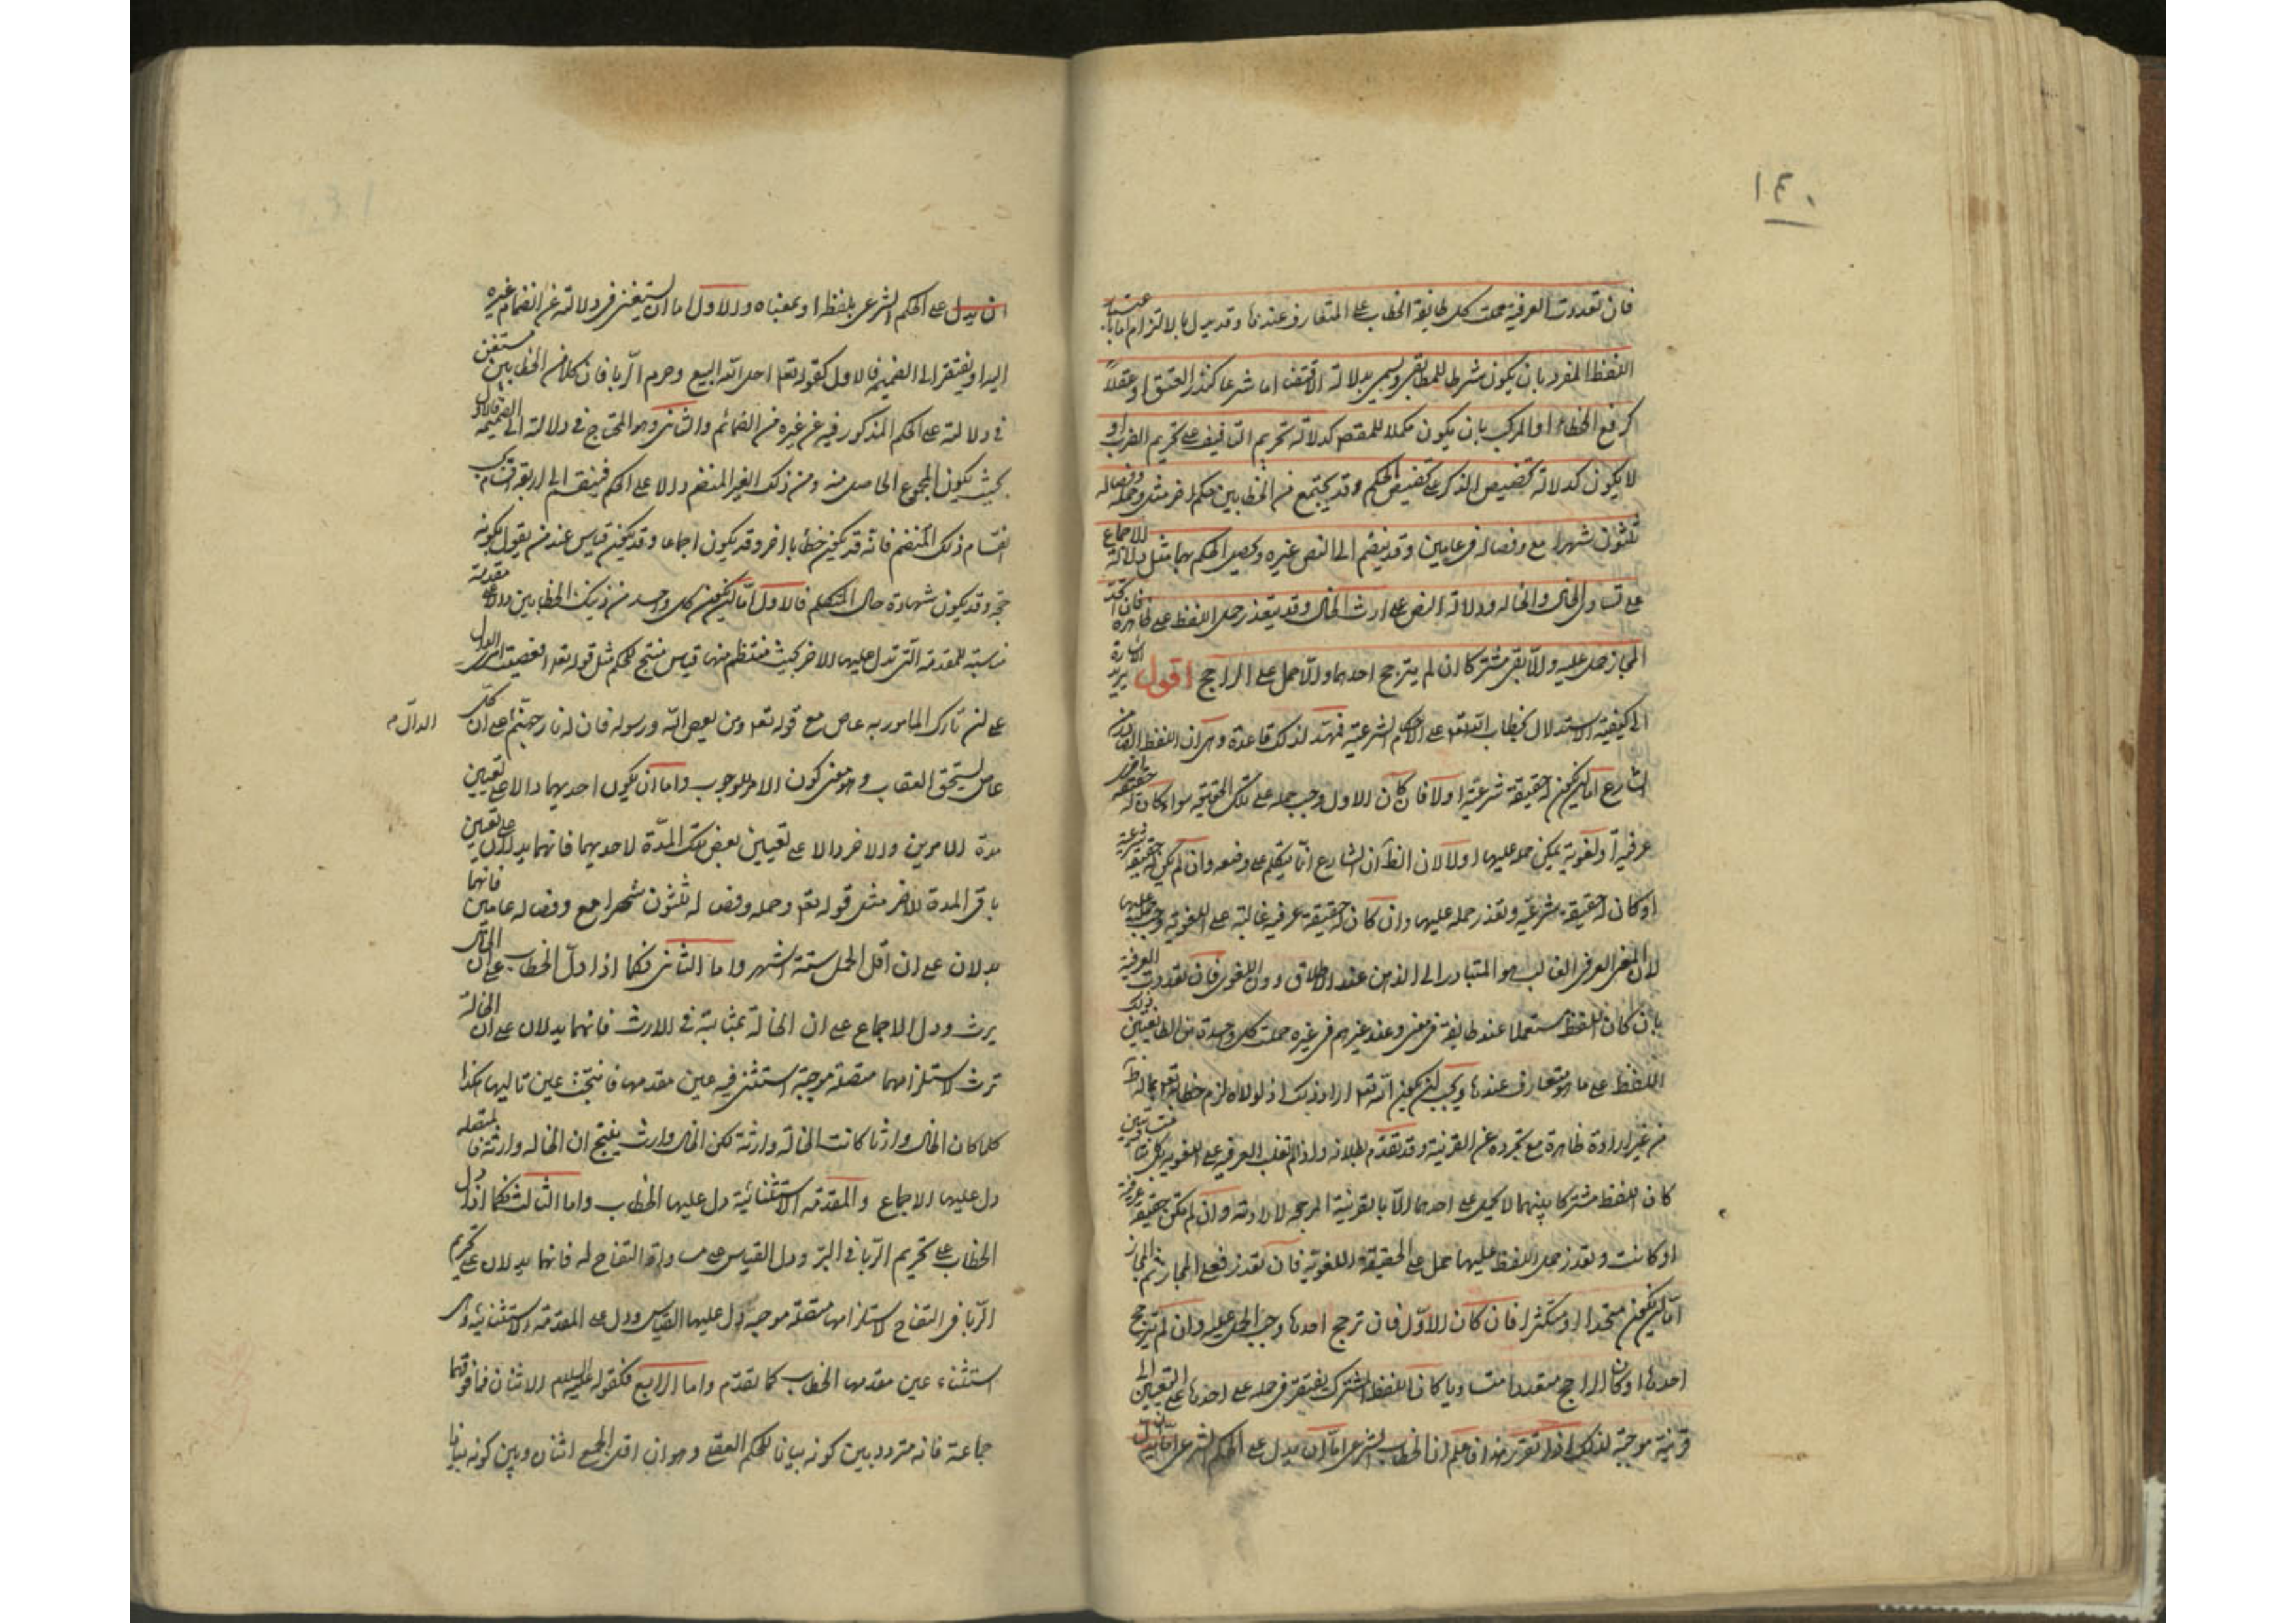 ١٤٠
فان تعددت العرفية حملت كل طايفة الخطاب على المتعارف عندها وقد يدل بالالتزام اما باعتبار
اللفظ المفرد بان يكون شرطا للمطابقى ويسمى بدلالة الاقتضاء اما شرعا كـ العتق او عقلا
كرفع الخطاء او المركب بان يكون مكملا للمقصود كدلالة تحريم التافيف على تحريم الضرب او
لا يكون كدلالة تخصيص الذكر على تخصيص الحكم وقد يجتمع من الخطابين حكم اخر مثل وحمله وفصاله
ثلثون شهرا مع وفصاله فى عامين وقد ينضم الى النص غيره ويحصل الحكم بهما مثل دلالة الاجماع
على تساوى الخال والخاله ودلالة النص على ارث الخال وقد يتعذر حمل اللفظ على ظاهره فان اتحد
المجاز حمل عليه والا بقى مشتركا ان لم يترجح احدهما والا حمل على الراجح اقول يريد الاشارة
الى كيفية الاستدلال بخطاب الله تعالى على الاحكام الشرعية فمهد لذلك قاعدة وهى ان اللفظ الصادر من
الشارع اما ان يكون له حقيقة شرعية او لا فان كان الاول وجب حمله على تلك الحقيقة سواء كان له حقيقة اخرى
عرفية او لغوية يمكن حمله عليها اولا لان الظ ان الشارع انما يتكلم على وضعه وان لم يكن له حقيقة شرعية
او كان له حقيقة شرعية وتعذر حمله عليها وان كان له حقيقة عرفية غالبة على اللغوية وجب حمله عليها
لان المعنى العرفى الغالب هو المتبادر الى الذهن عند الاطلاق دون اللغوى فان تعددت العرفية
بان كان اللفظ مستعملا عند طايفة فى معنى وعند غيرهم فى غيره حملت كل واحدة من الطايفتين ذلك
اللفظ على ما هو متعارف عندها ويجب ان يكون الله تعالى اراد ذلك اذ لولاه لزم خطابه تعالى بما له ظ
من غير ارادة ظاهره مع تجرده عن القرينة وقد تقدم بطلانه واذا لم تغلب العرفيه على اللغويه بل كانتا متساويتين
كان اللفظ مشتركا بينهما لا يحمل على احدهما الا بالقرينة المرجحه لارادته وان لم تكن حقيقة عرفية
او كانت وتعذر حمل اللفظ عليها حمل على الحقيقة اللغوية فان تعذر فعلى المجاز ثم المجاز
اما ان يكون متحدا او متكثرا فان كان الاول فان ترجح احدها وجب الحمل عليه وان لم يترجح
احدها او كان الراجح متعددا متساويا كان اللفظ المشترك يفتقر فى حمله على احدها على التعيين الى
قرينة موجبة لذلك اذا تقرر هذا فاعلم ان الخطاب الشرعى اما ان يدل على الحكم الشرعى
ان يدل على الحكم الشرعى بلفظه او بمعناه والاول اما ان يستغنى فى دلالته عن انضمام غيره
اليه او يفتقر الى الضميمه فالاول كقوله تعالى احل الله البيع وحرم الربا فان كلا من الخطابين مستغن
فى دلالته على الحكم المذكور فيه عن غيره من الضمائم والثانى وهو المحتاج فى دلالته الى الضميمة
بحيث يكون المجموع الحاصل منه ومن ذلك الغير المنضم دالا على الحكم فينقسم الى اربعة اقسام
اقسام ذلك المنضم فانه قد يكون خطابا اخر وقد يكون اجماعا وقد يكون قياس عند من يقول بكونه
حجة وقد يكون شهادة حال المتكلم فالاول اما ان يكون كل واحد من ذينك الخطابين دالا على مقدمة
مناسبة للمقدمة التى تدل عليها الاخر بحيث فينتظم منها قياس منتج للحكم مثل قوله تعالى افعصيت امرى الدال
على ان تارك المامور به عاص مع قوله تعالى ومن يعص الله ورسوله فان له نار جهنم على ان كل
الدال م
عاص يستحق العقاب وهو معنى كون الامر للوجوب واما ان يكون احديهما دالا على تعيين
مدة لامرين والاخر دالا على تعيين بعض تلك المدة لاحديهما فانهما يدلان على تعيين
باقى المدة للاخر مثل قوله تعالى وحمله وفصاله ثلثون شهرا مع وفصاله عامين فانهما
يدلان على ان اقل الحمل ستة اشهر واما الثانى فكما اذا دل الخطاب على ان الخال
يرث ودل الاجماع على ان الخالة بمثابته فى الارث فانهما يدلان على ان الخالة
ترث لاستلزامهما متصلة موجبة استثنى فيه عين مقدمها فانتجت عين تاليها هكذا
كلما كان الخال وارثا كانت الخالة وارثة لكن الخال وارث ينتج ان الخاله وارثة فالمتصله
دل عليها الاجماع والمقدمة الاستثنائية دل عليها الخطاب واما الثالث فكما اذا دل
الخطاب على تحريم الربا فى البر ودل القياس على مساواة التفاح له فانهما يدلان على تحريم
الربا فى التفاح لاستلزامها متصلة موجبه دل عليها القياس ودل على المقدمة الاستثنائية وهى
استثناء عين مقدمها الخطاب كما تقدم واما الرابع فكقوله عليه السلام الاثنان فما فوقهما
جماعة فانه متردد بين كونه بيانا للحكم العقلى وهو ان اقل الجمع اثنان وبين كونه بيانا